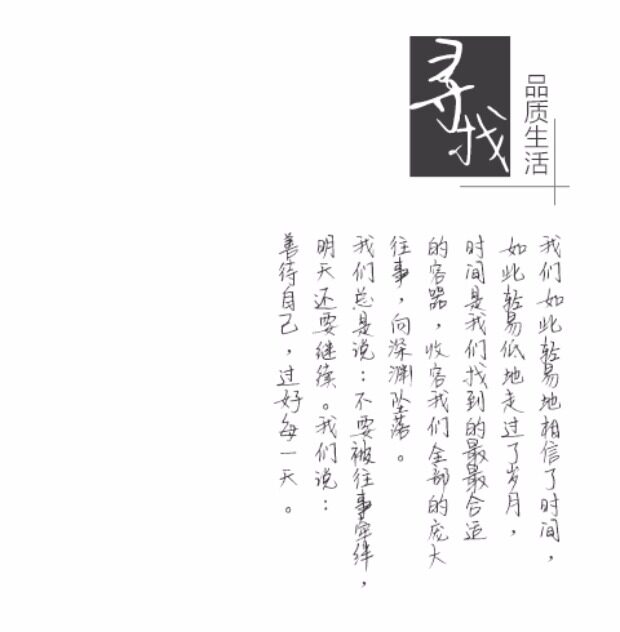 寻找
品质生活
我们如此轻易地相信了时间，
如此轻易低地走过了岁月，
时间是我们找到的最最合适
的容器，收容我们全部的庞大
往事，向深渊坠落。
我们总是说：不要被往事牵绊，
明天还要继续。我们说：
善待自己，过好每一天。